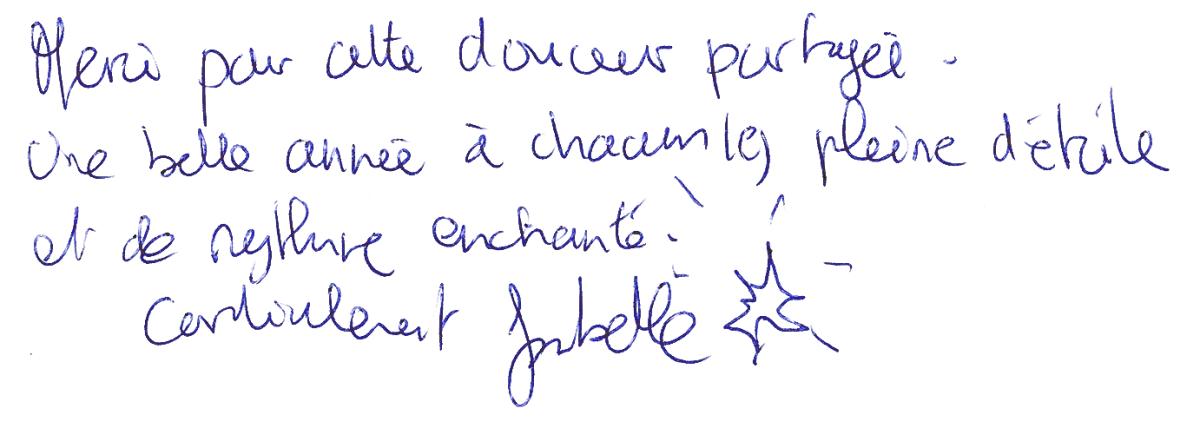 Merci pour cette douceur partagée.
Une belle année à chacun(e) pleine d'étoile
et de rythme enchanté.
Cordialement Isabelle